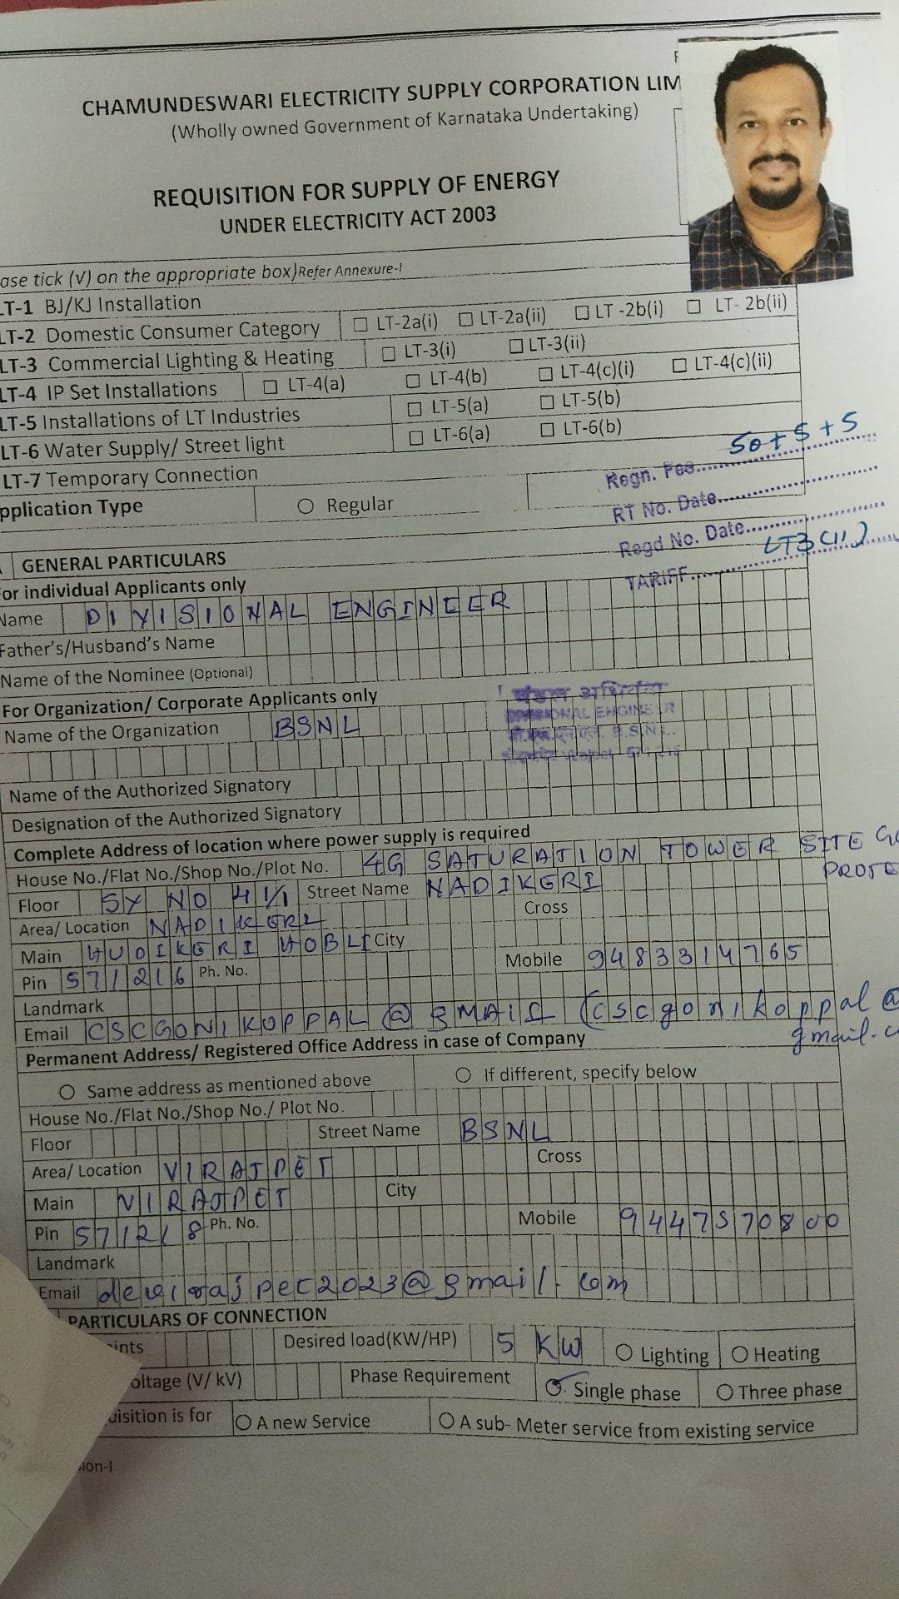 CHAMUNDESWARI ELECTRICITY SUPPLY CORPORATION LIM
(Wholly owned Government of Karnataka Undertaking)
REQUISITION FOR SUPPLY OF ENERGY
UNDER ELECTRICITY ACT 2003
ase tick (√) on the appropriate box)Refer Annexure-I
LT-1 BJ/KJ Installation
LT-2 Domestic Consumer Category ☐ LT-2a(i) ☐ LT-2a(ii) ☐ LT -2b(i) ☐ LT- 2b(ii)
LT-3 Commercial Lighting & Heating ☐ LT-3(i) ☐ LT-3(ii)
LT-4 IP Set Installations ☐ LT-4(a) ☐ LT-4(b) ☐ LT-4(c)(i) ☐ LT-4(c)(ii)
LT-5 Installations of LT Industries ☐ LT-5(a) ☐ LT-5(b)
LT-6 Water Supply/ Street light ☐ LT-6(a) ☐ LT-6(b)
LT-7 Temporary Connection
pplication Type ○ Regular
Regn. Fee........ 50+5+5
RT No. Date........
Regd No. Date........
TARIFF........ LT3(11)
GENERAL PARTICULARS
For individual Applicants only
Name DIVISIONAL ENGINEER
Father's/Husband's Name
Name of the Nominee (Optional)
For Organization/ Corporate Applicants only
Name of the Organization BSNL
मंडल अभियंता
DIVISIONAL ENGINEER
B.S.N.L.
Name of the Authorized Signatory
Designation of the Authorized Signatory
Complete Address of location where power supply is required
House No./Flat No./Shop No./Plot No. 4G SATURATION TOWER SITE
Floor SY NO 41/1 Street Name NADIKERI
Area/ Location NADIKERI Cross
Main HUDIKERI HOBLI City
Pin 571216 Ph. No. Mobile 9483314765
Landmark
Email CSCGONIKOPPAL @ GMAIL (cscgonikoppal@
gmail.c
Permanent Address/ Registered Office Address in case of Company
○ Same address as mentioned above ○ If different, specify below
House No./Flat No./Shop No./ Plot No.
Floor Street Name BSNL
Area/ Location VIRAJPET Cross
Main VIRAJPET City
Pin 571218 Ph. No. Mobile 9447570800
Landmark
Email devirajpet2023@gmail.com
PARTICULARS OF CONNECTION
ints Desired load(KW/HP) 5 KW ○ Lighting ○ Heating
oltage (V/ kV) Phase Requirement ○ Single phase ○ Three phase
uisition is for ○ A new Service ○ A sub- Meter service from existing service
ion-I